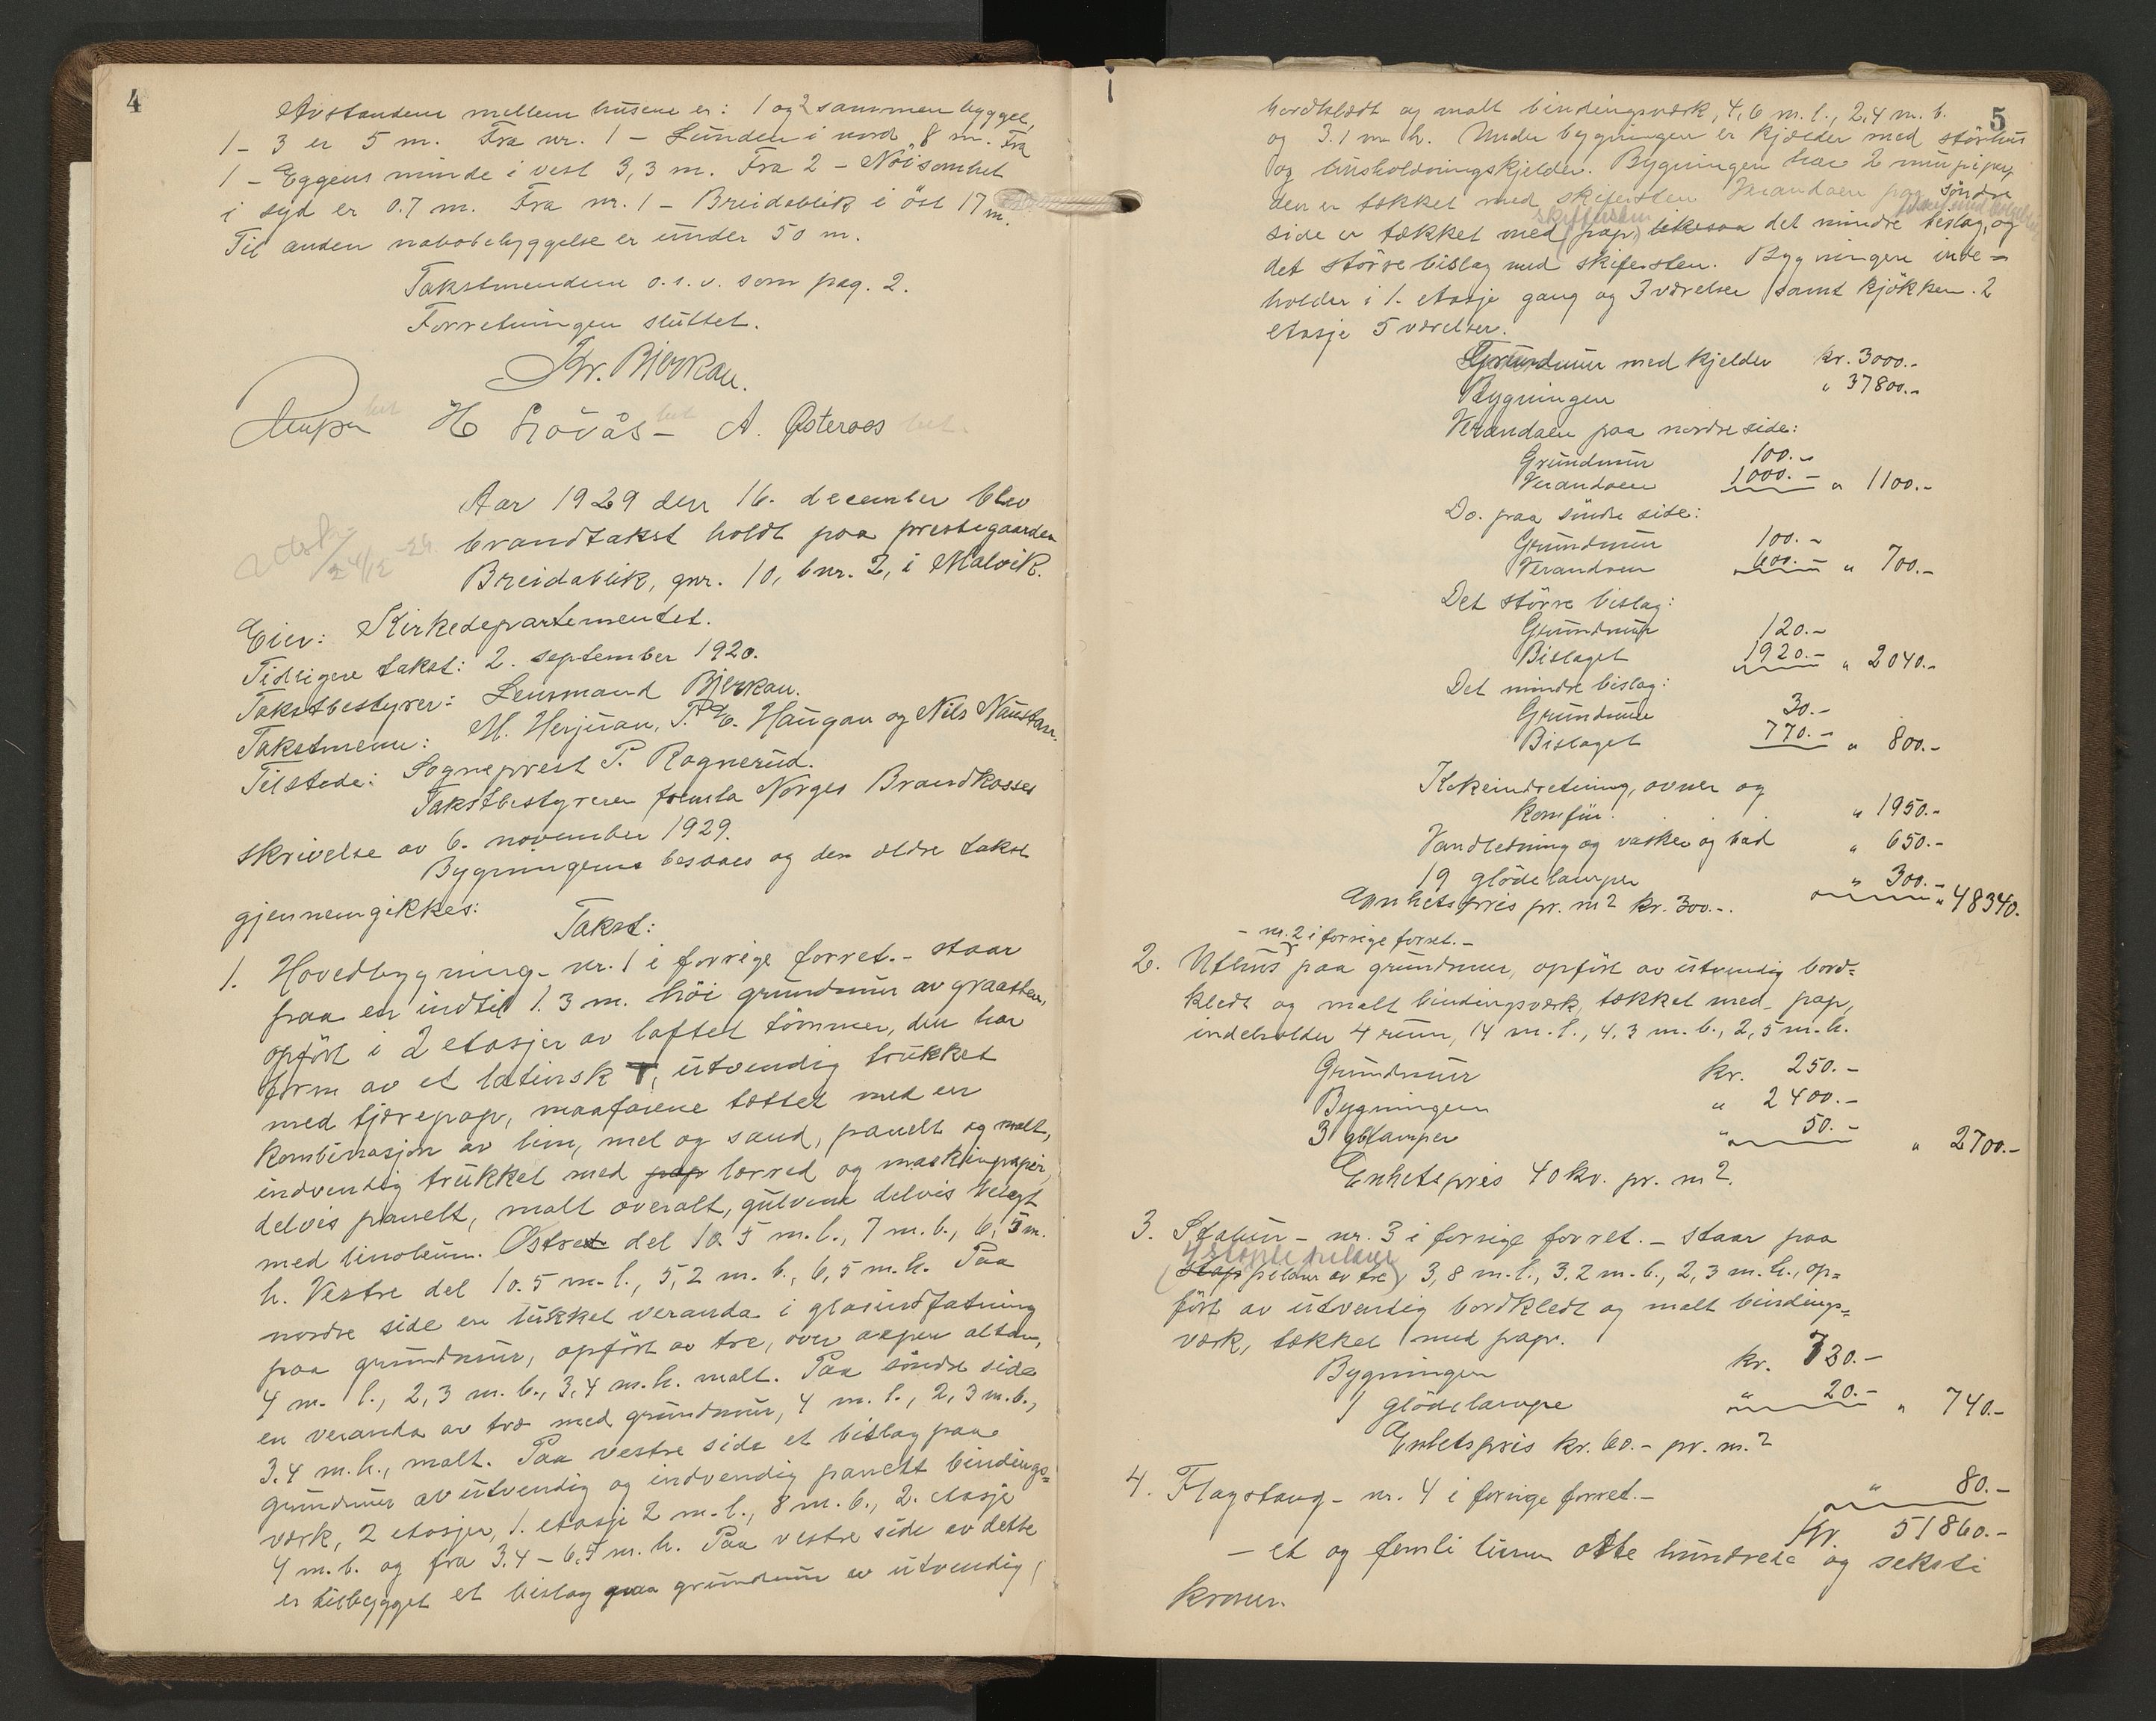 4
Avstandene mellem husene er: 1 og 2 sammenbygget,
1 - 3 er 5 m. Fra nr. 1 - Lunden i nord 8 m. Fra
1 - Eggens minde i vest 3,3 m. Fra 2 - Nöisomhet
i syd er 0.7 m. Fra nr. 1 - Breidablik i öst 17 m.
Til anden nabobebyggelse er under 50 m.
Takstmendene o.s.v. som pag. 2.
Forretningen sluttet.
Kr. Bjerkan.
H Lövås - A. Østeraas
Aar 1929 den 16. december blev
brandtakst holdt paa prestegaarden
Breidablik, gnr. 10, bnr. 2, i Malvik.
Utsk. 24/12 -29.
Eier: Kirkedepartementet.
Tidligere takst: 2. september 1920.
Takstbestyrer: Lensmand Bjerkan.
Takstmenn: M. Herjuan, P. Haugan og Nils Naustan.
Tilstede: Sogneprest P. Ragnerud.
Takstbestyreren fremla Norges Brandkasses
skrivelse av 6. november 1929.
Bygningene besaaes og den ældre takst
gjennemgikkes:
Takst:
1. Hovedbygning - nr. 1 i forrige forret. - staar
paa en indtil 1.3 m. höi grundmur av graasten,
opfört i 2 etasjer av laftet tömmer, den har
form av et latinsk T, utvendig trukket
med tjærepap, maafarene tættet med en
kombinasjon av lim, mel og sand, panelt og malt,
indvendig trukket med pap lærred og maskinpapir,
delvis panelt, malt overalt, gulvene delvis belagt
med linoleum. Østre del 10.5 m. l., 7 m. b., 6,5 m.
h. Vestre del 10.5 m. l., 5,2 m. b., 6,5 m. h. Paa
nordre side en lukket veranda i glasindfatning
paa grundmur, opfört av tre, over aapen altan,
4 m. l., 2,3 m. b., 3,4 m. h. malt. Paa söndre side
en veranda av træ med grundmur, 4 m. l., 2,3 m. b.,
3.4 m. h., malt. Paa vestre side et bislag paa
grundmur av utvendig og indvendig panelt bindings=
værk, 2 etasjer, 1. etasje 2 m. l., 8 m. b., 2. etasje
4 m. b. og fra 3.4 - 6.5 m. h. Paa vestre side av dette
er tilbygget et bislag paa grundmur av utvendig
5
bordklædt og malt bindingsværk, 4,6 m. l., 2,4 m. b.
og 3.1 m h. Under bygningen er kjælder med störhus
og husholdningskjelder. Bygningen har 2 murpiper,
den er tækket med skifersten Verandaen paa söndre
skifersten
side er tækket med (pap) likesaa det mindre bislag, og
det större bislag med skifersten. Bygningen inde=
holder i 1. etasje gang og 3 værelser samt kjökken. 2
etasje 5 værelser.
Grundmur med kjelder kr. 3000.-
Bygningen " 37800.-
Verandaen paa nordre side:
Grundmur 100.-
Verandaen 1000.- " 1100.-
Do. paa söndre side:
Grundmur 100.-
Verandaen 600.- " 700.-
Det större bislag:
Grundmur 120.-
Bislaget 1920.- " 2040.-
Det mindre bislag:
Grundmur 30.-
Bislaget 770.- " 800.-
Kokeindretning, ovner og
komfur. " 1950.-
Vandledning og vasker og bad " 650.-
19 glödelamper " 300.-
Enhetspris pr. m2 kr. 300.-. " 48340.
- nr. 2 i forrige forret. -
2. Uthus paa grundmur, opfört av utvendig bord=
kledt og malt bindingsværk, tækket med pap,
indeholder 4 rum, 14 m. l., 4,3 m. b., 2,5 m. h.
Grundmur kr. 250.-
Bygningen " 2400.-
3 gllamper " 50.- " 2700.-
Enhetspris 40 kr. pr. m2.
3. Stabur - nr. 3 i forrige forret. - staar paa
4 stöpte pelarer
(Stap pelarer av træ), 3,8 m. l., 3.2 m. b., 2,3 m. h., op=
fört av utvendig bordkledt og malt bindings=
værk, tækket med pap.
Bygningen kr. 720.-
1 glödelampe " 20.- " 740.-
Enhetspris kr. 60.- pr. m.2
4. Flagstang - nr. 4 i forrige forret. - " 80.-
Kr. 51860.-
- et og femti tusen otte hundrede og seksti
kroner.